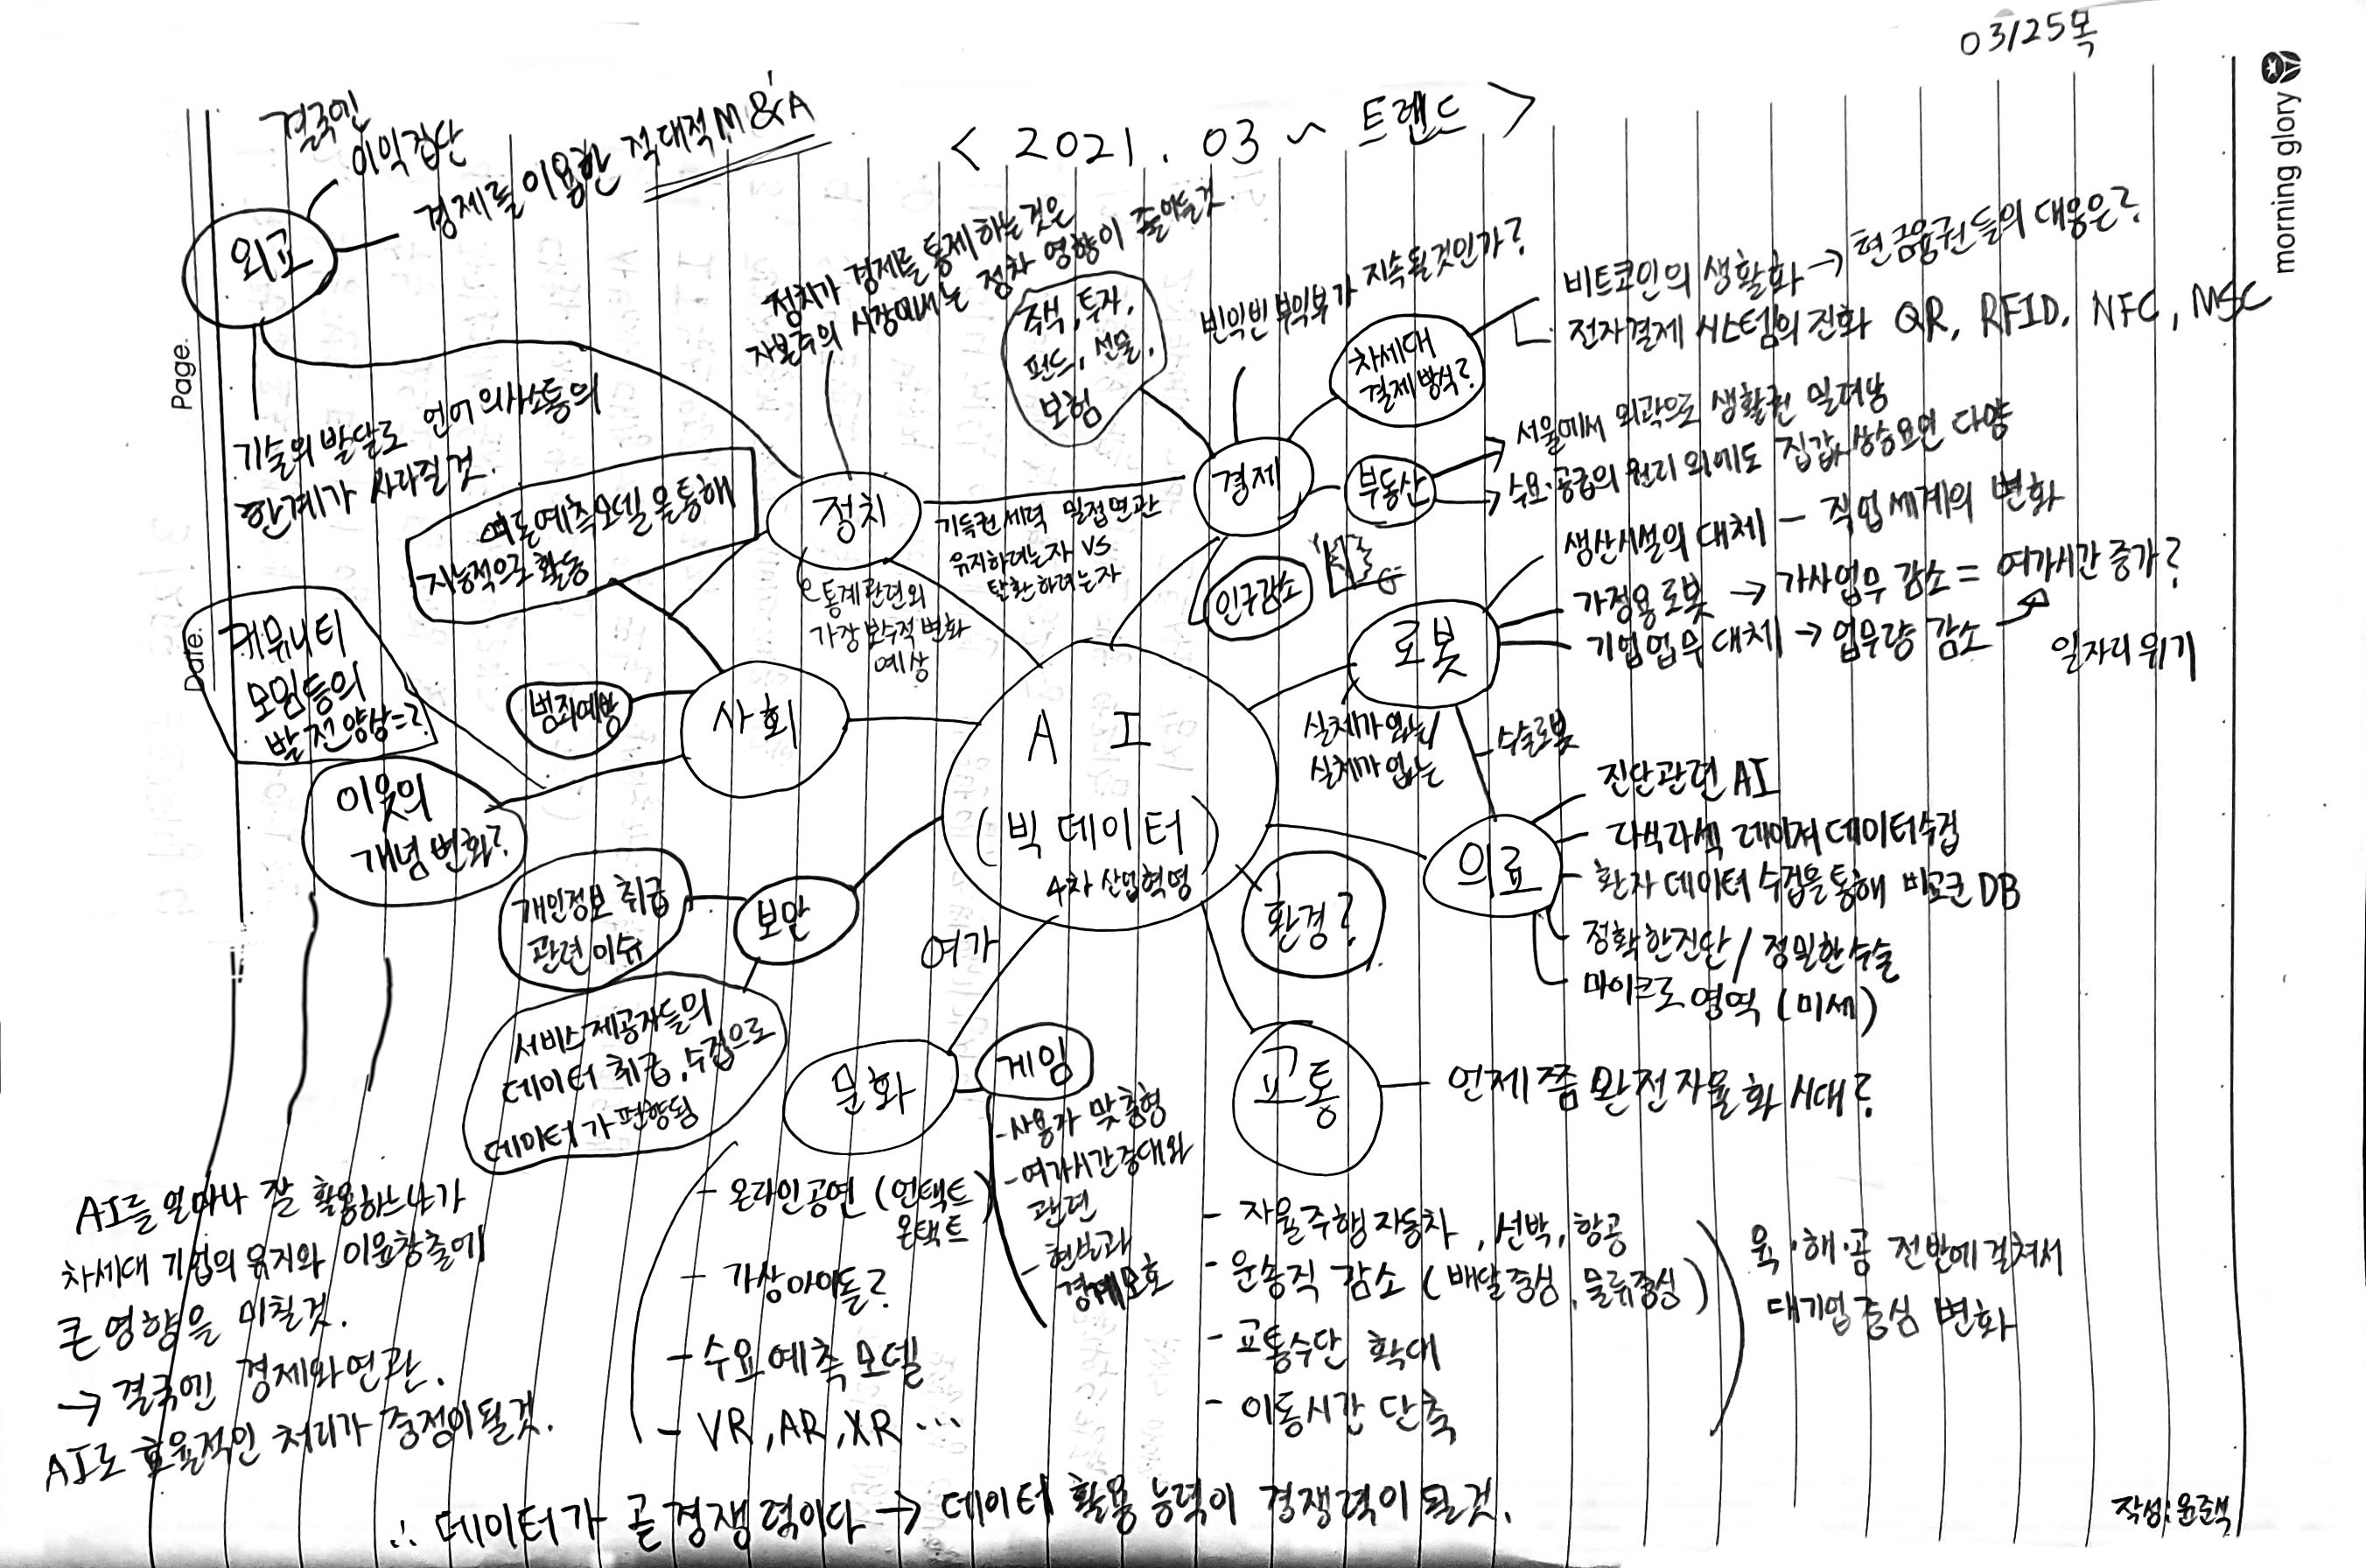 03/25목
morning glory
Page.
Date.
< 2021. 03 ~ 트렌드 >
결국엔
이익집단
경제를 이용한 적대적 M&A
외교
기술의 발달로 언어 의사소통의
한계가 사라질 것.
정치가 경제를 통제하는 것은
자본주의 시장에서는 점차 영향이 줄어들것.
정치
여론예측모델을 통해
지능적으로 활동
통계관련 외
가장 보수적 변화
예상
기득권세력 밀접연관
유지하려는자 VS
탈환하려는자
주식, 투자,
펀드, 선물,
보험
빈익빈 부익부가 지속될것인가?
경제
차세대
결제방식?
비트코인의 생활화 → 현금융권들의 대응은?
전자결제 시스템의 진화 QR, RFID, NFC, MSC
부동산
서울에서 외곽으로 생활권 밀려남
수요·공급의 원리 외에도 집값 상승요인 다양
인구감소
로봇
생산시설의 대체 - 직업세계의 변화
가정용 로봇 → 가사업무 감소 = 여가시간 증가?
기업업무 대체 → 업무량 감소
일자리 위기
실체가 있는/
실체가 없는
수술로봇
의료
진단관련 AI
다색다색 레이져 데이터수집
환자 데이터 수집을 통해 비교군 DB
정확한진단 / 정밀한수술
마이크로 영역 (미세)
AI
(빅데이터)
4차 산업혁명
사회
범죄예방
커뮤니티
모임등의
발전양상=?
이웃의
개념 변화?
보안
개인정보 취급
관련이슈
서비스제공자들의
데이터 취급, 수집으로
데이터가 편향됨
여가
문화
게임
- 사용자 맞춤형
- 여가시간증대와
관련
- 현실과
경계모호
- 온라인공연 (언택트)
온택트
- 가상아이돌?
- 수요예측 모델
- VR, AR, XR ...
환경?
교통
언제쯤 완전자율화 시대?
- 자율주행자동차, 선박, 항공
- 운송직 감소 (배달중심, 물류중심)
- 교통수단 확대
- 이동시간 단축
육·해·공 전반에 걸쳐서
대기업중심 변화
AI를 얼마나 잘 활용하느냐가
차세대 기업의 유지와 이윤창출에
큰 영향을 미칠것.
→ 결국엔 경제와연관.
AI로 효율적인 처리가 중점이 될것.
∴ 데이터가 곧 경쟁력이다 → 데이터 활용 능력이 경쟁력이 될것.
작성: 윤준식